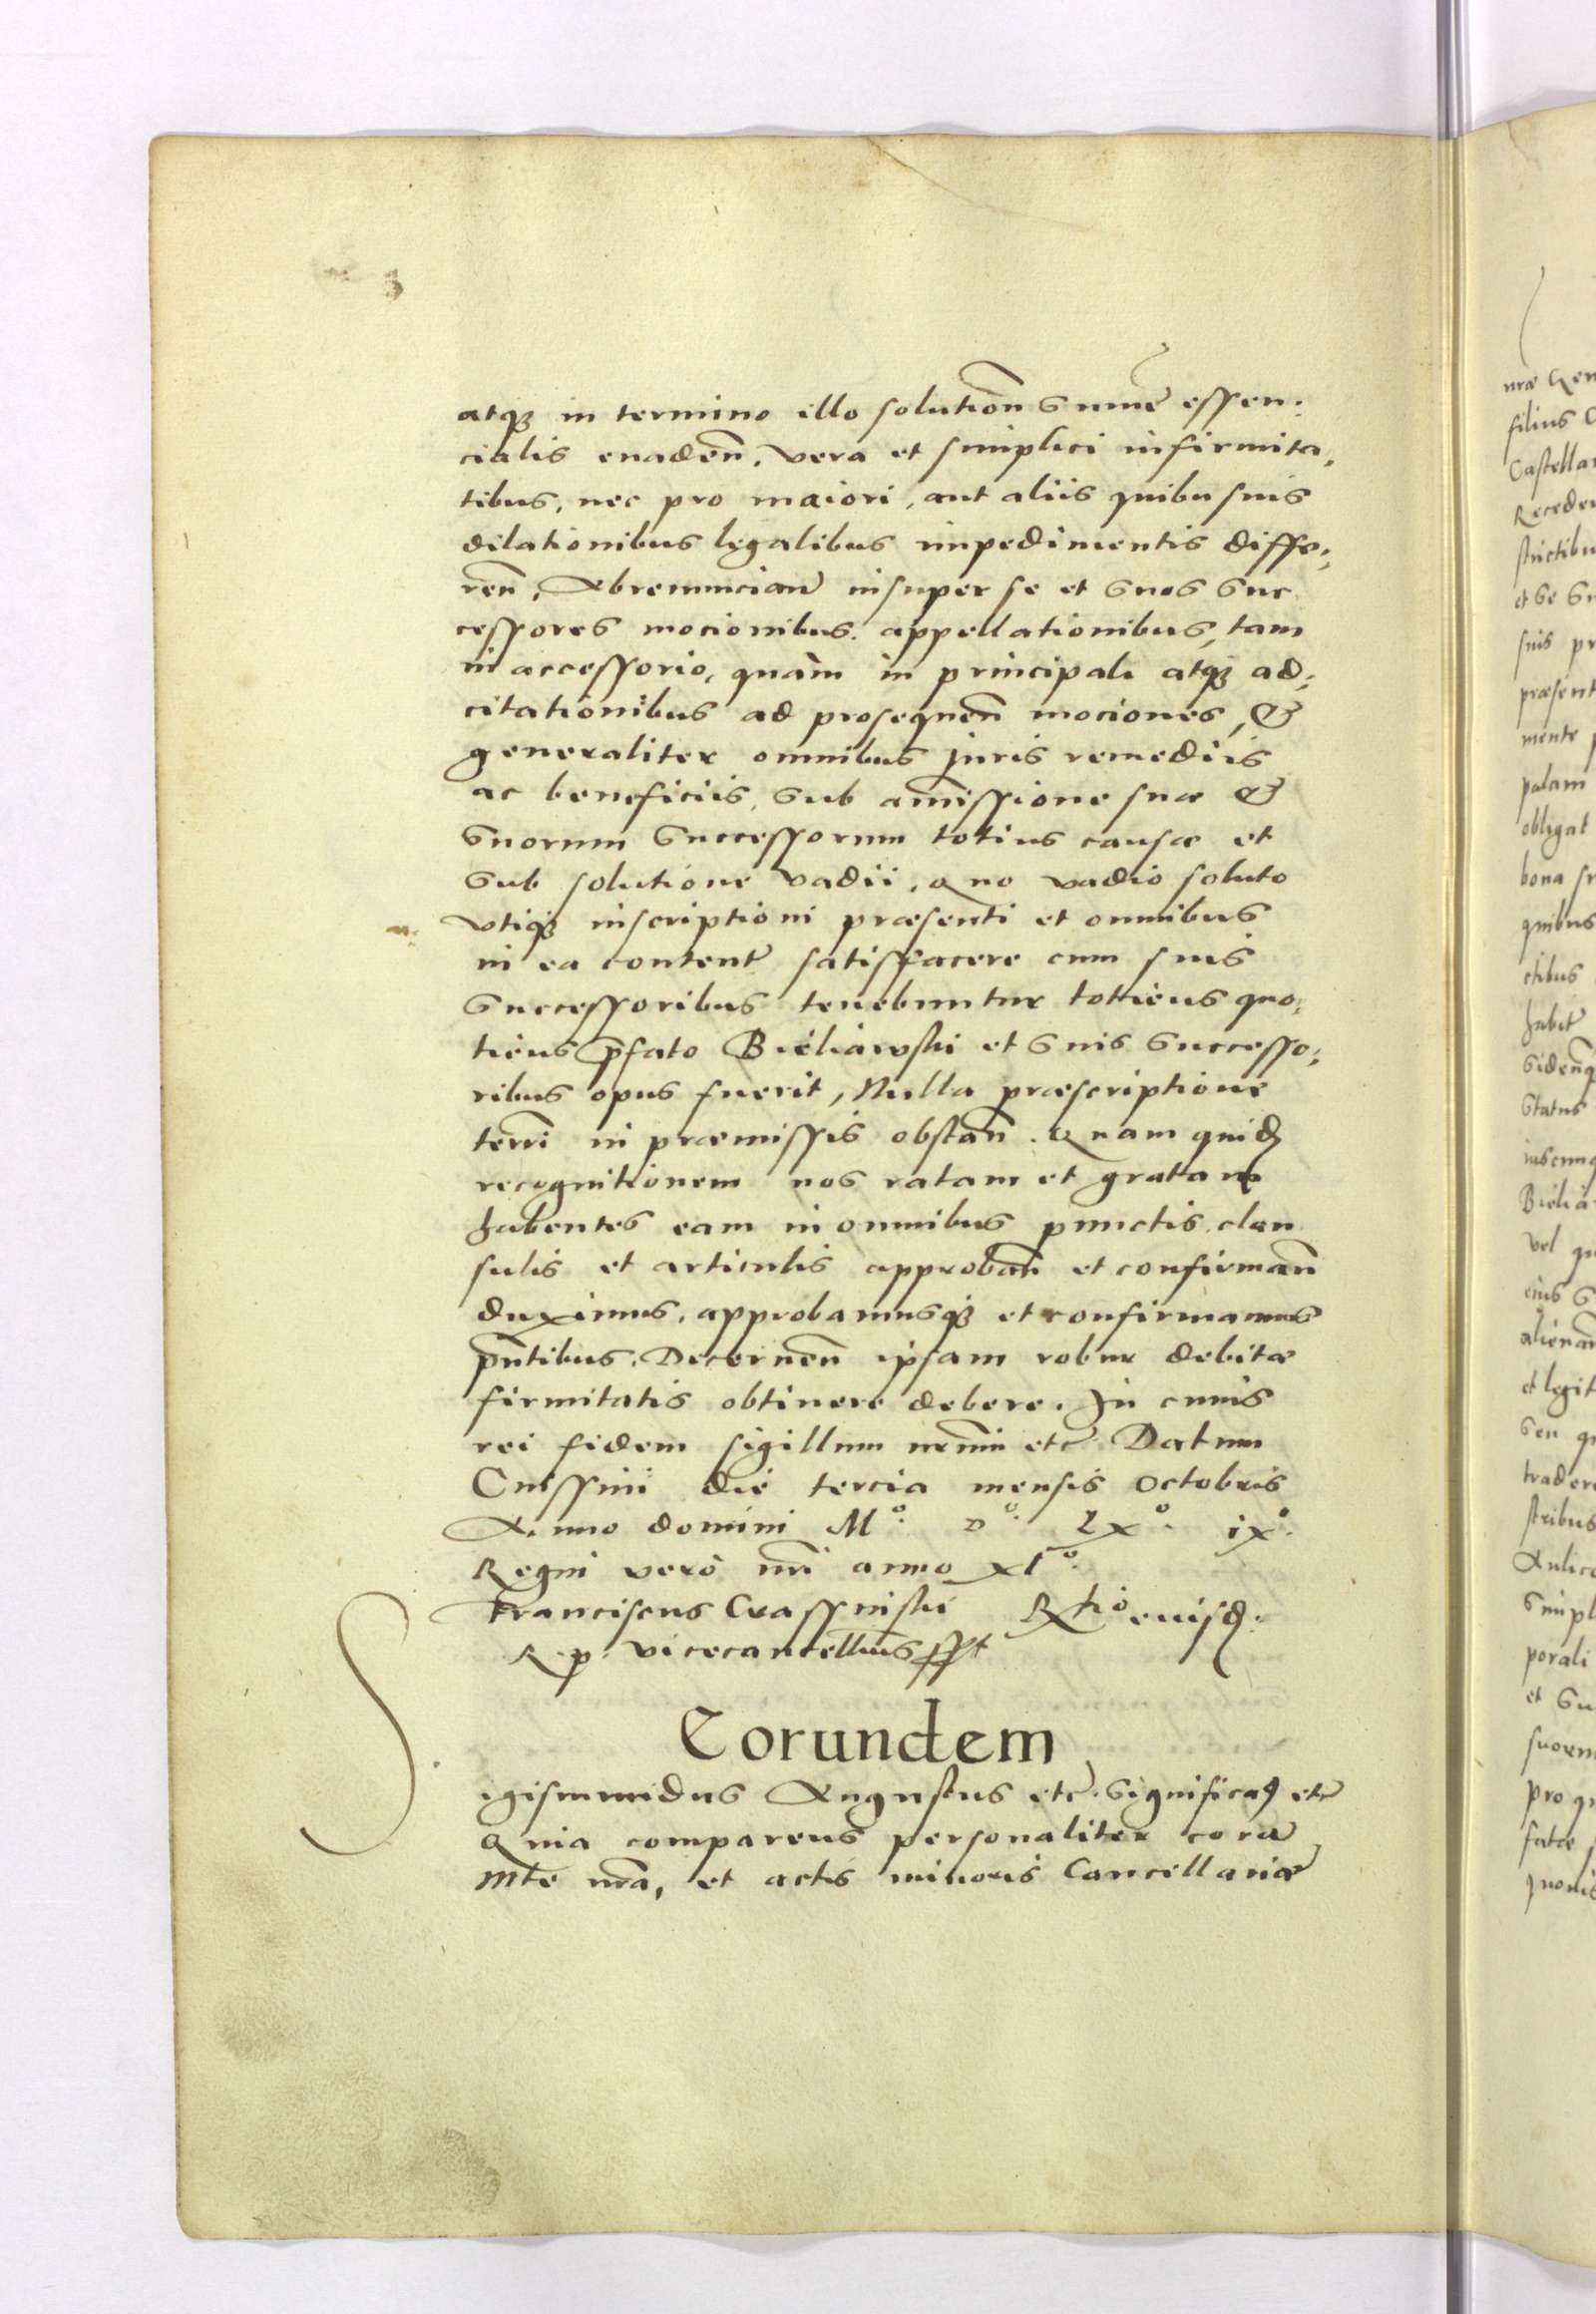 atqȝ in termino illo solution̄ summe essen:
cialis euaden̄, vera et simplici infirmita,
tibus, nec pro maiori, aut aliis quibusuis
dilationibus legalibus impedimentis diffe:
ren̄, Abrenuncian̄ insuper se et suos suc
cessores mocionibus, appellationibus, tam
in accessorio, quàm in principali atqȝ ad:
citationibus ad prosequen̄ mociones, &
generaliter omnibus juris remediis
ac beneficiis, sub amissione suæ &
suorum successorum totius causæ et
sub solutione vadii, quo vadio soluto
vtiqȝ inscriptioni præsenti et omnibus
in ea content̄ satisfacere cum suis
successoribus tenebuntur totiens quo:
tiens p̄fato Bieliawski et suis successo:
ribus opus fuerit, Nulla præscriptione
terr̄i in præmissis obstan̄. Quam quid̄
recognitionem nos ratam et gratam
habentes eam in omnibus punctis clau
sulis et articulis approban̄ et confirman̄
duximus, approbamusqȝ et confirmamus
pn̄tibus, Decernen̄ ipsam robur debitæ
firmitatis obtinere debere. In cuius
rei fidem sigillum nr̄um etc̄ Datum
Cnissini die tercia mensis Octobris
Anno domini Mº. Dº. Lxº. ixº.
Regni verò nr̄i anno xlº.
Franciscus Crassinski Rtio euisd.
R. p. vicecancellarius sspt
Eorundem
Sigismundus Augustus etc̄. Significaɋ etc̄
Quia comparens personaliter cora᷑
Mte nr̄a, et actis minoris Cancellariæ
nræ
filius
Castella
Recede
strictibu
et se
suis pr
præsent
mente
palam
obligat
bona
quibus
ctibus
habet̄
Status
Bielia
vel
eius
alienan̄
et legit
seu
trader
stribus
Aulic
simpl
porali
et su
suorum
pro
fatæ